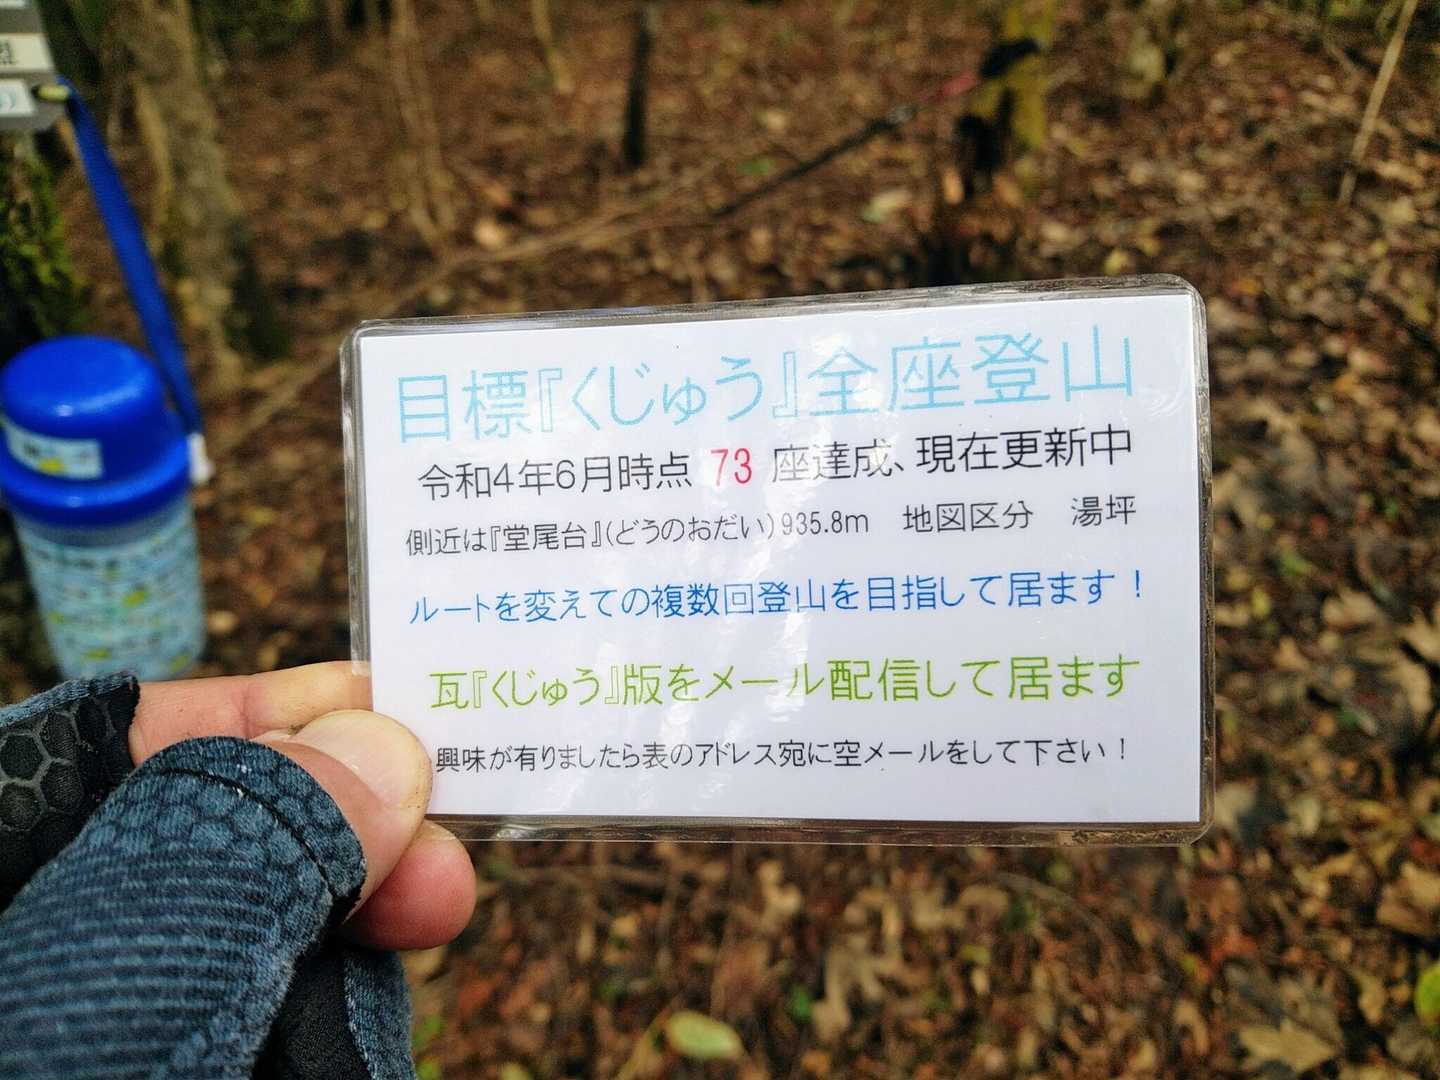 目標『くじゅう』全座登山
令和4年6月時点 73 座達成、現在更新中
側近は『堂尾台』(どうのおだい)935.8m　地図区分　湯坪
ルートを変えての複数回登山を目指して居ます！
瓦『くじゅう』版をメール配信して居ます
興味が有りましたら表のアドレス宛に空メールをして下さい！